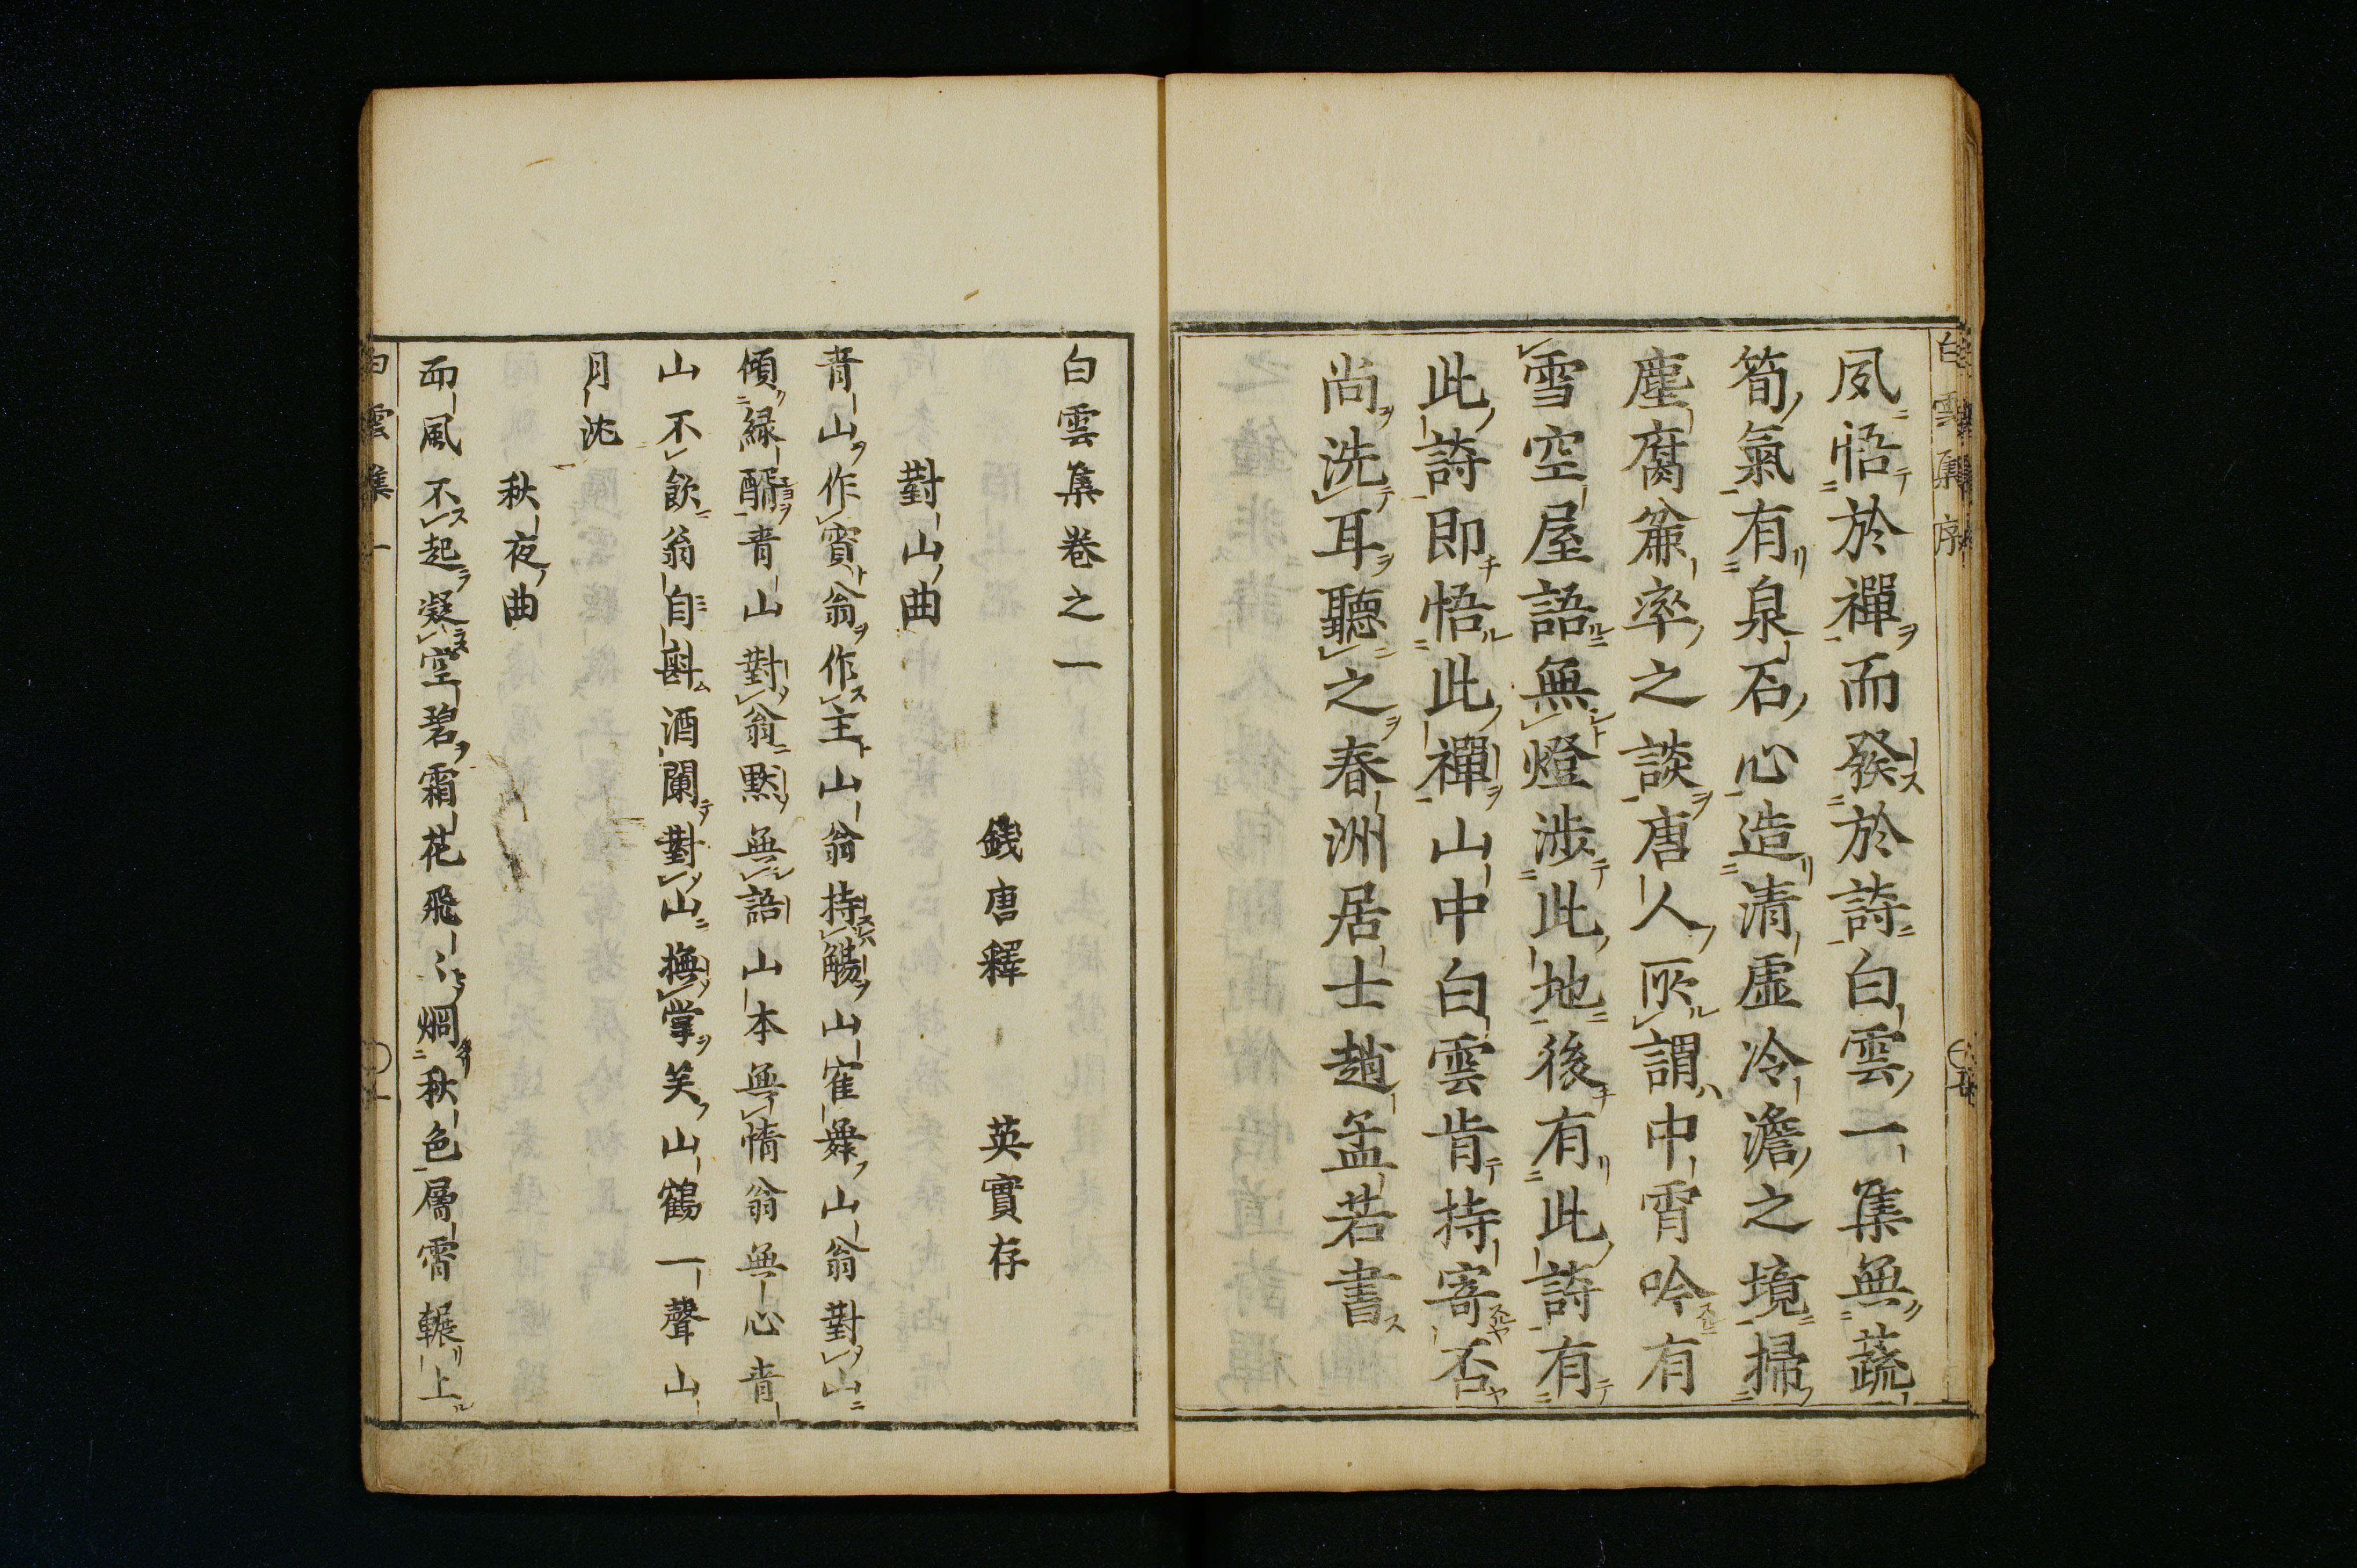 白雲集序
夙悟於禪而發於詩白雲一集無蔬
筍氣有泉石心造清虛冷澹之境掃
塵腐粂率之談唐人所謂中宵吟有
雪空屋語無燈涉此地後有此詩有
此詩即悟此禪山中白雲肯持寄否
尚洗耳聽之春洲居士趙孟若書
白雲集卷之一
錢唐釋 英實存
對山曲
青山作賓翁作主山翁持觴山寉舞山翁對山
傾緑醑青山對翁黙無語山本無情翁無心青
山不飲翁自斟酒闌對山撫掌笑山鶴一聲山
月沈
秋夜曲
西風不起凝空碧霜花飛〻烱秋色層霄輾上
白雲集一